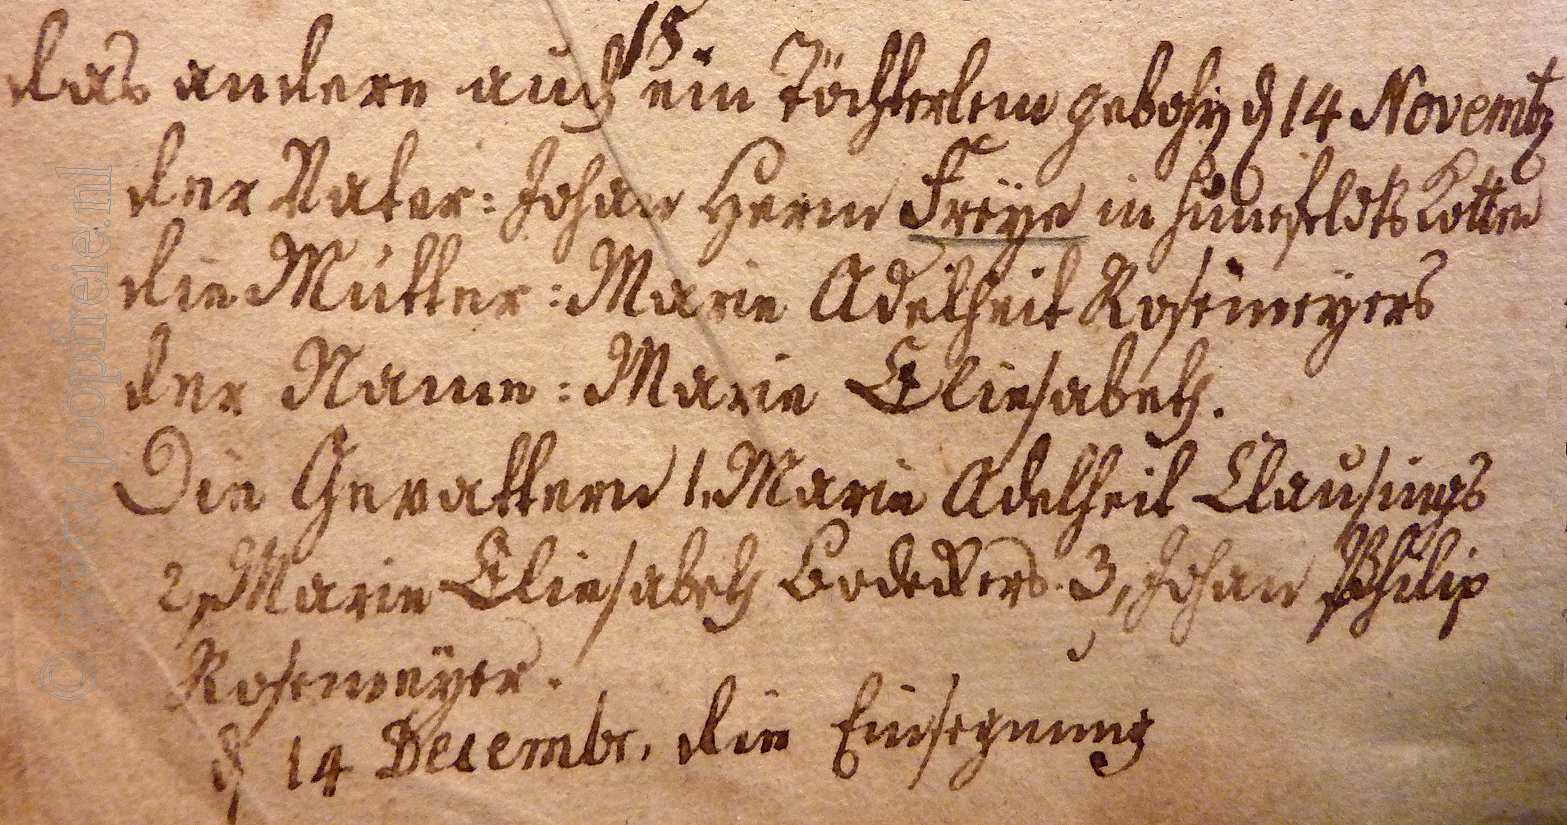 18.
das andere auch ein Töchterlein gebohrn d 14 Novembr
der Vater: Johan Herm Freye in Hünefeldts Kotten
die Mütter: Marie Adelheit Rosemeÿers
der Name: Marie Eliesabeth.
Die Gevattern 1, Marie Adelheit Clausings
2, Marie Eliesabeth Bödekers. 3, Johan Philip
Rosemeÿer.
d 14 Decembr. die Einsegnung
© www.joopfreie.nl